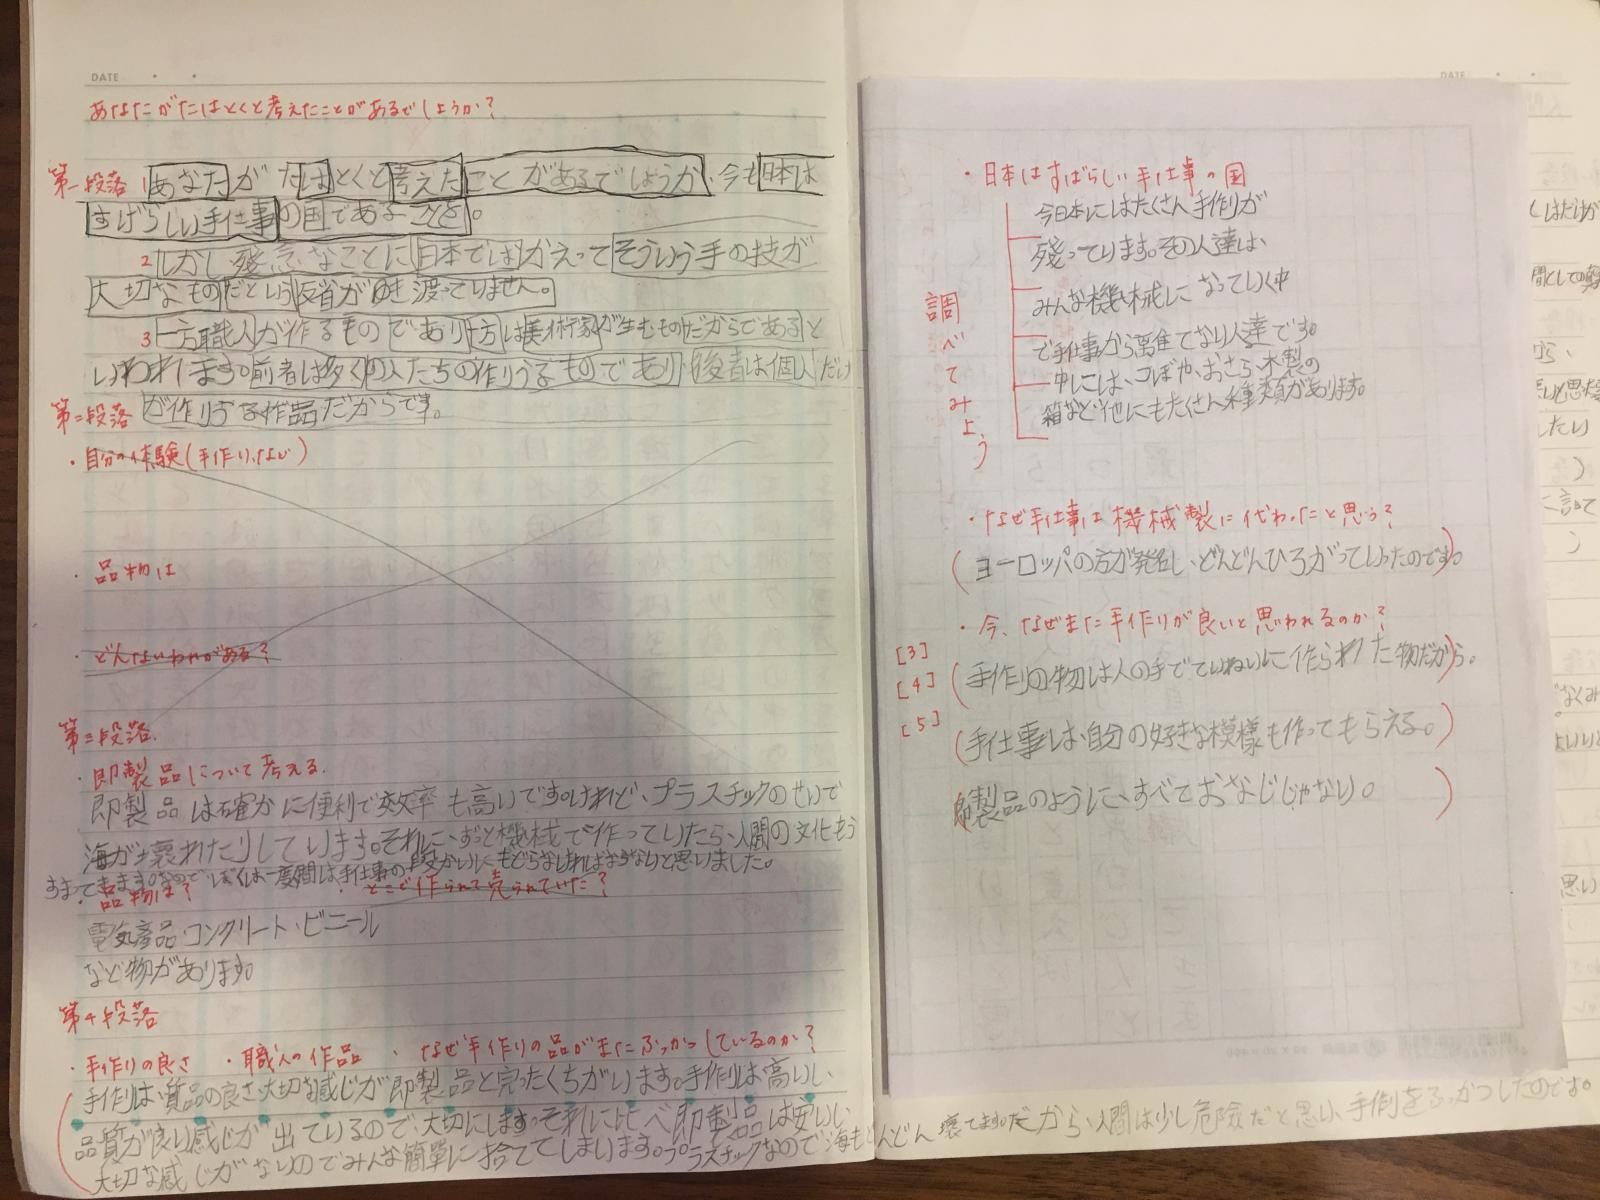 DATE
あなたがたはとくと考えたことがあるでしょうか?
第一段落 1 あなたがたはとくと考えたことがあるでしょうか、今も日本は
すばらしい手仕事の国であることを。
2 しかし残念なことに日本ではかえってそういう手の技が
大切なものだという反省がゆき渡っていません。
3 一方職人が作るものであり一方は美術家が生むものだからであると
いわれます。前者は多くの人たちの作りうるものであり、後者は個人だけ
第二段落 が作りうる作品だからです。
・自分の体験(手作り、など)
・品物は
・どんないわれがある?
第三段落
・即製品について考える
即製品は確かに便利で効率も高いです。けれど、プラスチックのせいで
海が壊れたりしています。それに、ずっと機械で作っていたら、人間の文化もう
すまってきます。なので、ぼくは一度人間は手仕事の
もどらなければならないと思いました。
・品物は? ・どこで作られて売られていた?
電気産品・コンクリート・ビニール
など物があります。
第4段落
・手作りの良さ ・職人の作品 ・なぜ手作りの品がまたふっかつしているのか?
(手作りは、質品の良さ、大切な感じが即製品と完ったくちがいます。手作りは高いし
品質が良い感じが出ているので、大切にします。それに比べ即製品は安いし
大切な感じがないのでみんな簡単に捨ててしまいます。プラスチックなので海もどんどん壊てます。だから、人間は少し危険だと思い、手作をふっかつしたのです。
DATE
調べてみよう
・日本はすばらしい手仕事の国
今日本にはたくさん手作りが
残っています。その人達は、
みんな機械に なっていく中
で手仕事から離在てない人達です。
中には、つぼや、おさら、木製の
箱など他にもたくさん種類があります。
・なぜ手仕事は機械製に代わったと思う?
(ヨーロッパの方が発名し、どんどんひろがっていったのです。)
・今、なぜまた手作りが良いと思われるのか?
[3]
[4] (手作りの物は人の手でていねいに作られた物だから。)
[5] (手仕事は、自分の好きな模様も作ってもらえる。)
(即製品のように、すべておなじじゃない。)